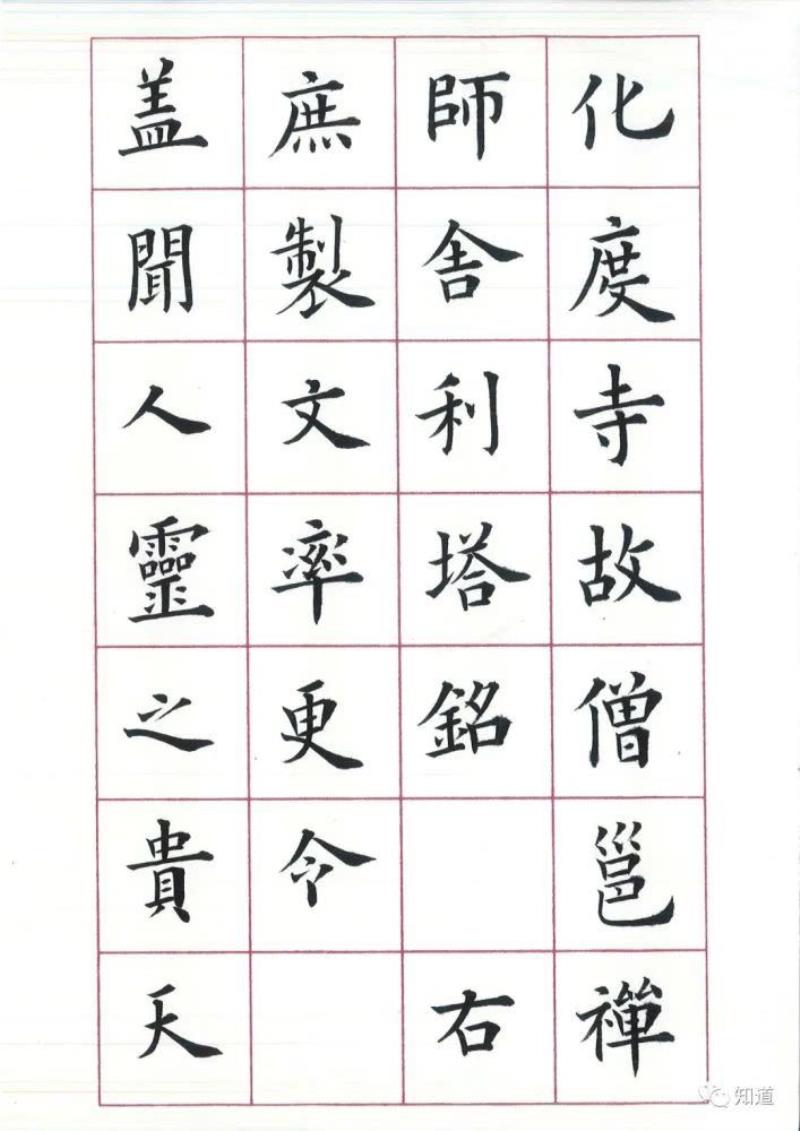 化度寺故僧邕禪
師舍利塔銘 右
庶製文率更令
盖聞人靈之貴天
知道